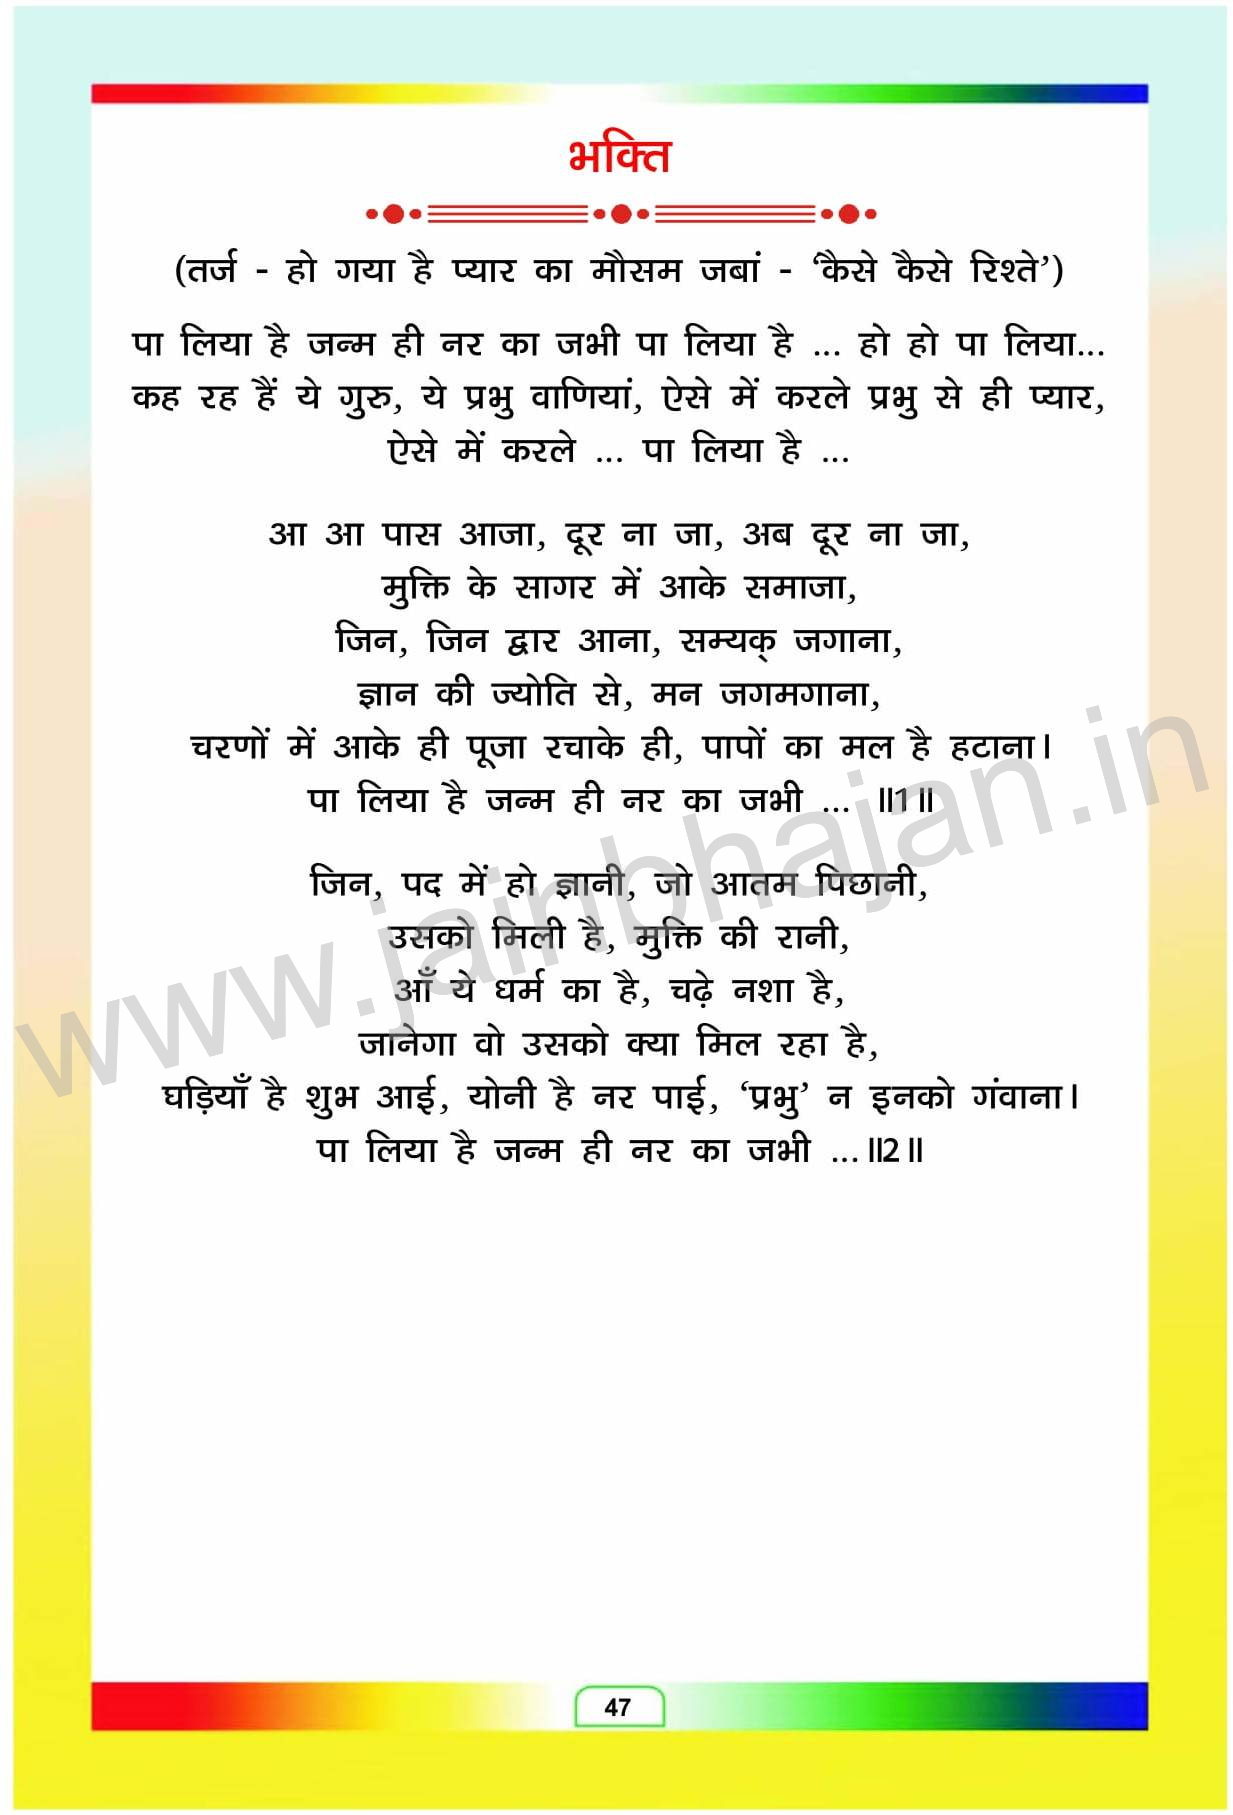 भक्ति
(तर्ज - हो गया है प्यार का मौसम जबां - ‘कैसे कैसे रिश्ते’)
पा लिया है जन्म ही नर का जभी पा लिया है ... हो हो पा लिया...
कह रह हैं ये गुरु, ये प्रभु वाणियां, ऐसे में करले प्रभु से ही प्यार,
ऐसे में करले ... पा लिया है ...
आ आ पास आजा, दूर ना जा, अब दूर ना जा,
मुक्ति के सागर में आके समाजा,
जिन, जिन द्वार आना, सम्यक् जगाना,
ज्ञान की ज्योति से, मन जगमगाना,
चरणों में आके ही पूजा रचाके ही, पापों का मल है हटाना।
पा लिया है जन्म ही नर का जभी ... ॥1॥
जिन, पद में हो ज्ञानी, जो आतम पिछानी,
उसको मिली है, मुक्ति की रानी,
आँ ये धर्म का है, चढ़े नशा है,
जानेगा वो उसको क्या मिल रहा है,
घड़ियाँ है शुभ आई, योनी है नर पाई, ‘प्रभु’ न इनको गंवाना।
पा लिया है जन्म ही नर का जभी ...॥2॥
www.jainbhajan.in
47